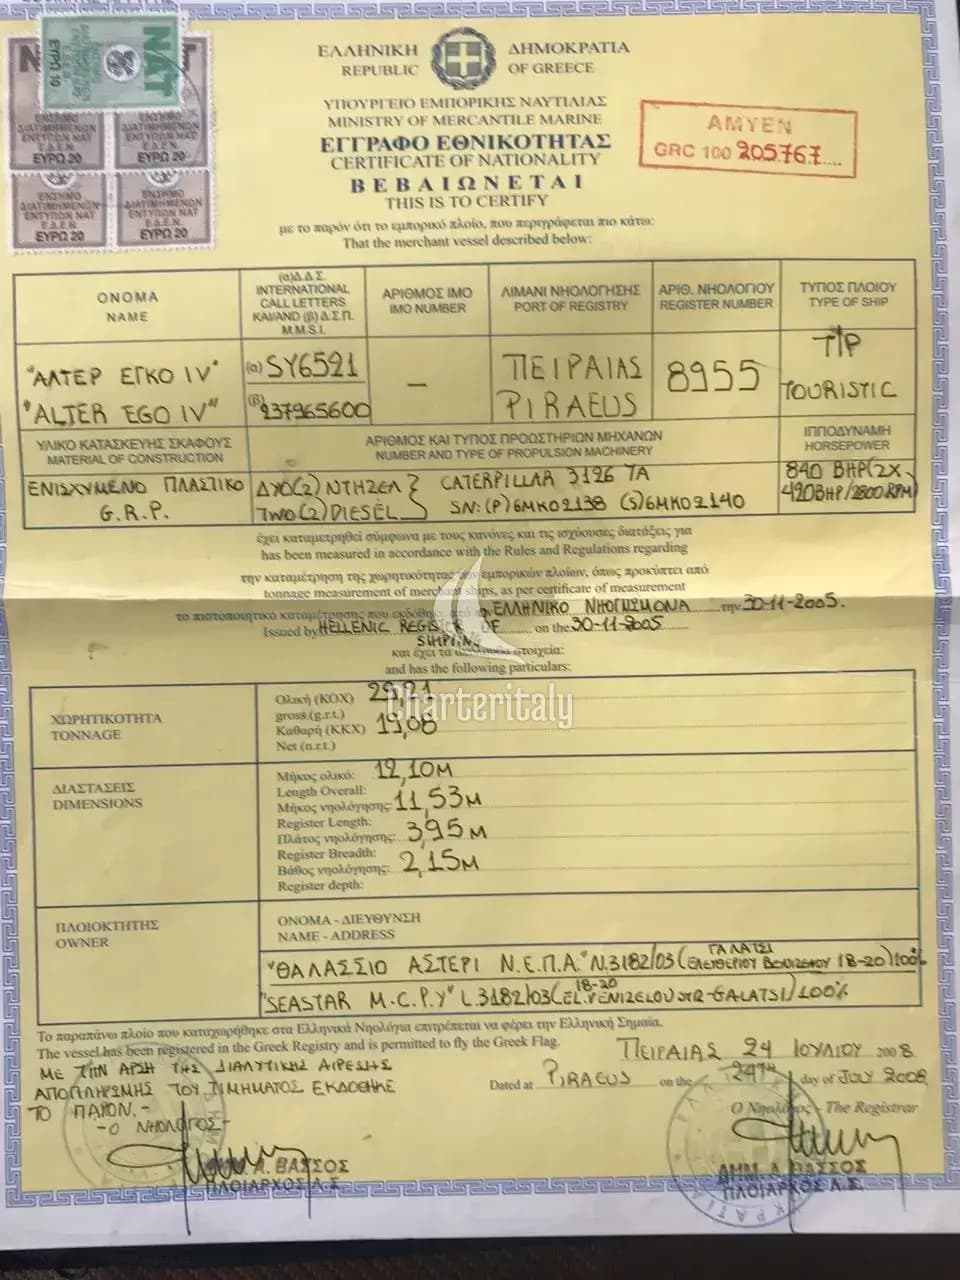 ΝΑΤ
ΕΥΡΩ 10
ΕΝΣΗΜΟ
ΔΙΑΤΙΜΗΜΕΝΩΝ
ΕΝΤΥΠΩΝ ΝΑΤ
Ε.Δ.Ε.Ν.
ΕΥΡΩ 20
ΕΝΣΗΜΟ
ΔΙΑΤΙΜΗΜΕΝΩΝ
ΕΝΤΥΠΩΝ ΝΑΤ
Ε.Δ.Ε.Ν.
ΕΥΡΩ 20
ΕΝΣΗΜΟ
ΔΙΑΤΙΜΗΜΕΝΩΝ
ΕΝΤΥΠΩΝ ΝΑΤ
Ε.Δ.Ε.Ν.
ΕΥΡΩ 20
ΕΝΣΗΜΟ
ΔΙΑΤΙΜΗΜΕΝΩΝ
ΕΝΤΥΠΩΝ ΝΑΤ
Ε.Δ.Ε.Ν.
ΕΥΡΩ 20
ΕΛΛΗΝΙΚΗ ΔΗΜΟΚΡΑΤΙΑ
REPUBLIC OF GREECE
ΥΠΟΥΡΓΕΙΟ ΕΜΠΟΡΙΚΗΣ ΝΑΥΤΙΛΙΑΣ
MINISTRY OF MERCANTILE MARINE
ΕΓΓΡΑΦΟ ΕΘΝΙΚΟΤΗΤΑΣ
CERTIFICATE OF NATIONALITY
ΒΕΒΑΙΩΝΕΤΑΙ
THIS IS TO CERTIFY
ΑΜΥΕΝ
GRC 100 205767
με το παρόν ότι το εμπορικό πλοίο, που περιγράφεται πιο κάτω:
That the merchant vessel described below:
ΟΝΟΜΑ
NAME
(α)Δ.Δ.Σ.
INTERNATIONAL
CALL LETTERS
ΚΑΙ/AND (β) Δ.Σ.Π.
M.M.S.I.
ΑΡΙΘΜΟΣ ΙΜΟ
IMO NUMBER
ΛΙΜΑΝΙ ΝΗΟΛΟΓΗΣΗΣ
PORT OF REGISTRY
ΑΡΙΘ. ΝΗΟΛΟΓΙΟΥ
REGISTER NUMBER
ΤΥΠΟΣ ΠΛΟΙΟΥ
TYPE OF SHIP
"ΑΛΤΕΡ ΕΓΚΟ IV"
"ALTER EGO IV"
(α) SY6521
(β) 237965600
—
ΠΕΙΡΑΙΑΣ
PIRAEUS
8955
Τ/Ρ
TOURISTIC
ΥΛΙΚΟ ΚΑΤΑΣΚΕΥΗΣ ΣΚΑΦΟΥΣ
MATERIAL OF CONSTRUCTION
ΑΡΙΘΜΟΣ ΚΑΙ ΤΥΠΟΣ ΠΡΟΩΣΤΗΡΙΩΝ ΜΗΧΑΝΩΝ
NUMBER AND TYPE OF PROPULSION MACHINERY
ΙΠΠΟΔΥΝΑΜΗ
HORSEPOWER
ΕΝΙΣΧΥΜΕΝΟ ΠΛΑΣΤΙΚΟ
G.R.P.
ΔΥΟ(2) ΝΤΗΖΕΛ } CATERPILLAR 3126 TA
TWO(2) DIESEL } SN: (P) 6MK02138 (S) 6MK02140
840 BHP (2X
420BHP/2800 RPM)
έχει καταμετρηθεί σύμφωνα με τους κανόνες και τις ισχύουσες διατάξεις για
has been measured in accordance with the Rules and Regulations regarding
την καταμέτρηση της χωρητικότητας των εμπορικών πλοίων, όπως προκύπτει από
tonnage measurement of merchant ships, as per certificate of measurement
το πιστοποιητικό καταμέτρησης που εκδόθηκε από ΕΛΛΗΝΙΚΟ ΝΗΟΓΝΩΜΟΝΑ την 30-11-2005.
Issued by HELLENIC REGISTER OF on the 30-11-2005
SHIPPING
και έχει τα ακόλουθα στοιχεία:
and has the following particulars:
Charteritaly
ΧΩΡΗΤΙΚΟΤΗΤΑ
TONNAGE
Ολική (ΚΟΧ) 29,21
gross (g.r.t.)
Καθαρή (ΚΚΧ) 19,08
Net (n.r.t.)
ΔΙΑΣΤΑΣΕΙΣ
DIMENSIONS
Μήκος ολικό: 12,10Μ
Length Overall:
Μήκος νηολόγησης: 11,53Μ
Register Length:
Πλάτος νηολόγησης: 3,95Μ
Register Breadth:
Βάθος νηολόγησης: 2,15Μ
Register depth:
ΠΛΟΙΟΚΤΗΤΗΣ
OWNER
ΟΝΟΜΑ - ΔΙΕΥΘΥΝΣΗ
NAME - ADDRESS
ΓΑΛΑΤΣΙ
"ΘΑΛΑΣΣΙΟ ΑΣΤΕΡΙ Ν.Ε.Π.Α." Ν.3182/03 (ΕΛΕΥΘΕΡΙΟΥ ΒΕΝΙΖΕΛΟΥ 18-20) 100%
18-20
"SEASTAR M.C.P.Y" L.3182/03 (EL.VENIZELOU STR-GALATSI) 100%
Το παραπάνω πλοίο που καταχωρήθηκε στα Ελληνικά Νηολόγια επιτρέπεται να φέρει την Ελληνική Σημαία.
The vessel has been registered in the Greek Registry and is permitted to fly the Greek Flag.
ΜΕ ΤΗΝ ΑΡΣΗ ΤΗΣ ΔΙΑΛΥΤΙΚΗΣ ΑΙΡΕΣΗΣ
ΑΠΟΠΛΗΡΩΜΗΣ ΤΟΥ ΤΙΜΗΜΑΤΟΣ ΕΚΔΟΘΗΚΕ
ΤΟ ΠΑΡΟΝ.-
-Ο ΝΗΟΛΟΓΟΣ-
ΠΕΙΡΑΙΑΣ 24 ΙΟΥΛΙΟΥ 2008
Dated at PIRAEUS on the 24TH day of JULY 2008
Ο Νηολόγος - The Registrar
Α. ΒΑΣΣΟΣ
ΠΛΟΙΑΡΧΟΣ Λ.Σ.
ΔΗΜ. Α. ΒΑΣΣΟΣ
ΠΛΟΙΑΡΧΟΣ Λ.Σ.